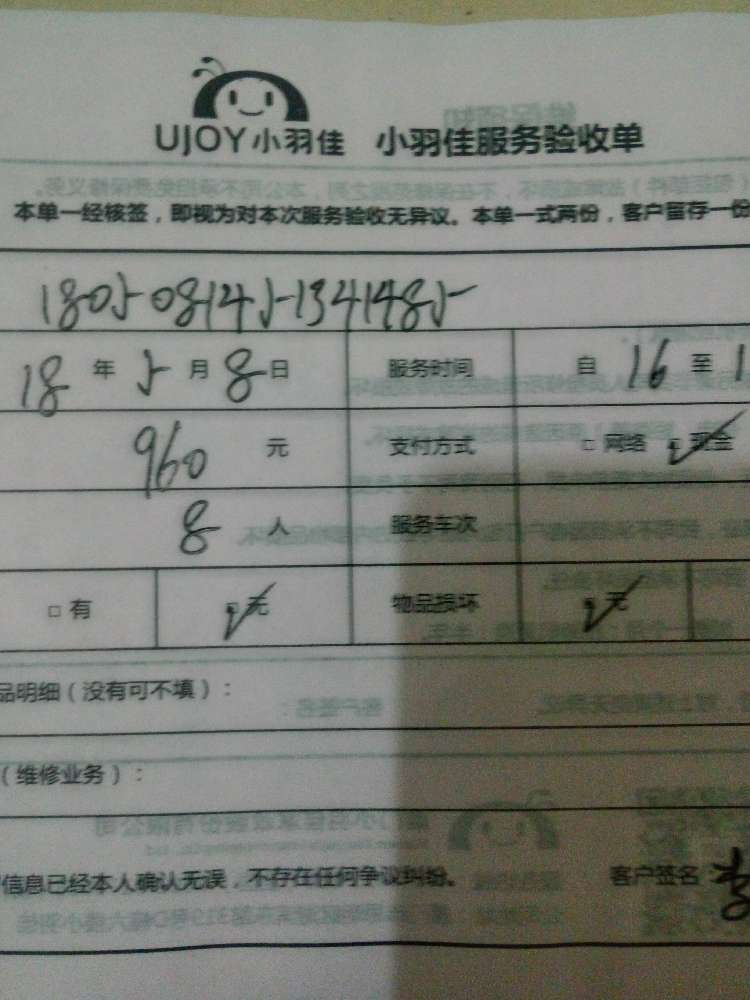 UJOY小羽佳 小羽佳服务验收单
本单一经核签，即视为对本次服务验收无异议。本单一式两份，客户留存一份
180508145-1341485
18 年 5 月 8 日 服务时间 自 16 至 1
960 元 支付方式 □ 网络 ☑ 现金
8 人 服务车次
□ 有 ☑ 无 物品损坏 ☑ 无
品明细（没有可不填）：
（维修业务）：
信息已经本人确认无误，不存在任何争议纠纷。 客户签名 李